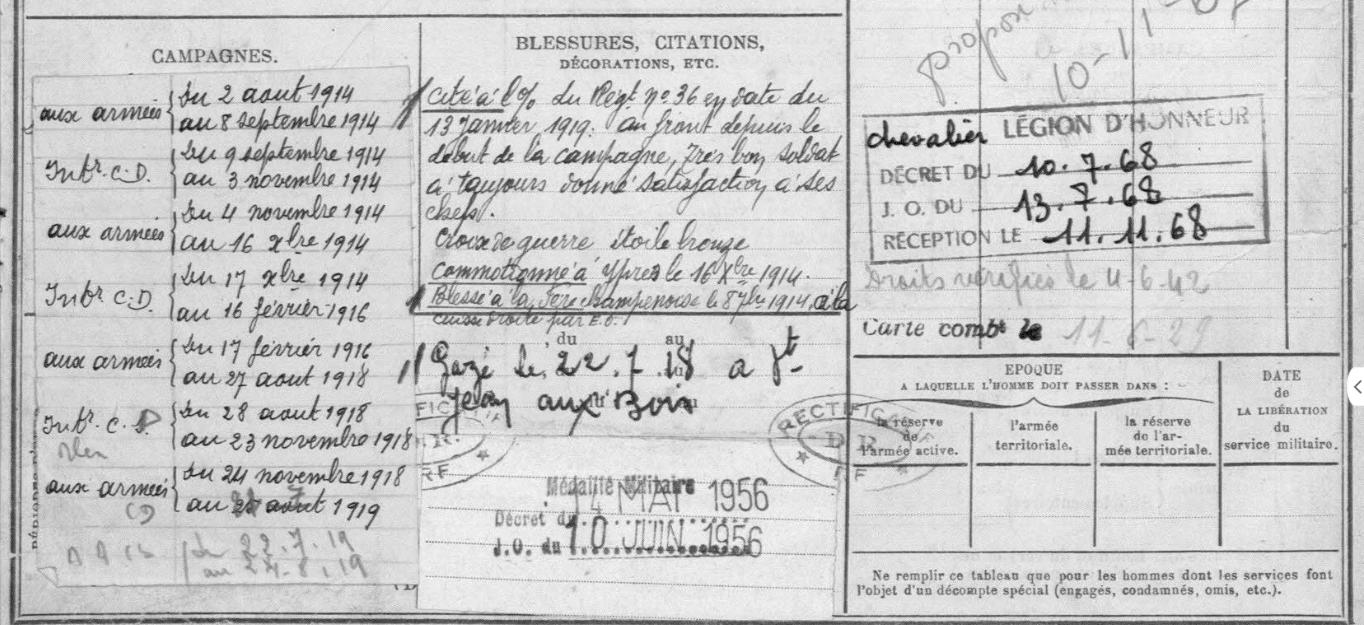 CAMPAGNES.
aux armées
du 2 aout 1914
au 8 septembre 1914
Intr. C.D.
du 9 septembre 1914
au 3 novembre 1914
aux armées
du 4 novembre 1914
au 16 xbre 1914
Intr C.D.
du 17 xbre 1914
au 16 février 1916
aux armées
du 17 février 1916
au 27 aout 1918
Intr. C.D
du 28 aout 1918
au 23 novembre 1918
aux armées
du 24 novembre 1918
au 1919
CD
du 22.7.19
au 24.8.19
BLESSURES, CITATIONS,
DÉCORATIONS, ETC.
Cité à l'o% du Régt. n° 36 en date du
13 Janvier 1919. au front depuis le
début de la campagne, très bon soldat
a toujours donné satisfaction à ses
chefs.
Croix de guerre étoile bronze
Commotionné à Ypres le 16 Xbre 1914.
Blessé à la Fère champenoise le 8 7bre 1914, à la
cuisse droite par E.O.
du au
Gazé le 22.7.18 a St-
Jean aux Bois
RECTIFICATIF
D R
RF
Médaille Militaire
Décret du 4 MAI 1956
J.O. du 10 JUIN 1956
propos
10-11-67
chevalier LÉGION D'HONNEUR
DÉCRET DU 10.7.68
J. O. DU 13.7.68
RÉCEPTION LE 11.11.68
Droits vérifiés le 4-6-42
Carte combt le 11-6-29
EPOQUE
A LAQUELLE L'HOMME DOIT PASSER DANS :
la réserve
de
l'armée active.
l'armée
territoriale.
la réserve
de l'ar-
mée territoriale.
DATE
de
LA LIBÉRATION
du
service militaire.
Ne remplir ce tableau que pour les hommes dont les services font
l'objet d'un décompte spécial (engagés, condamnés, omis, etc.).